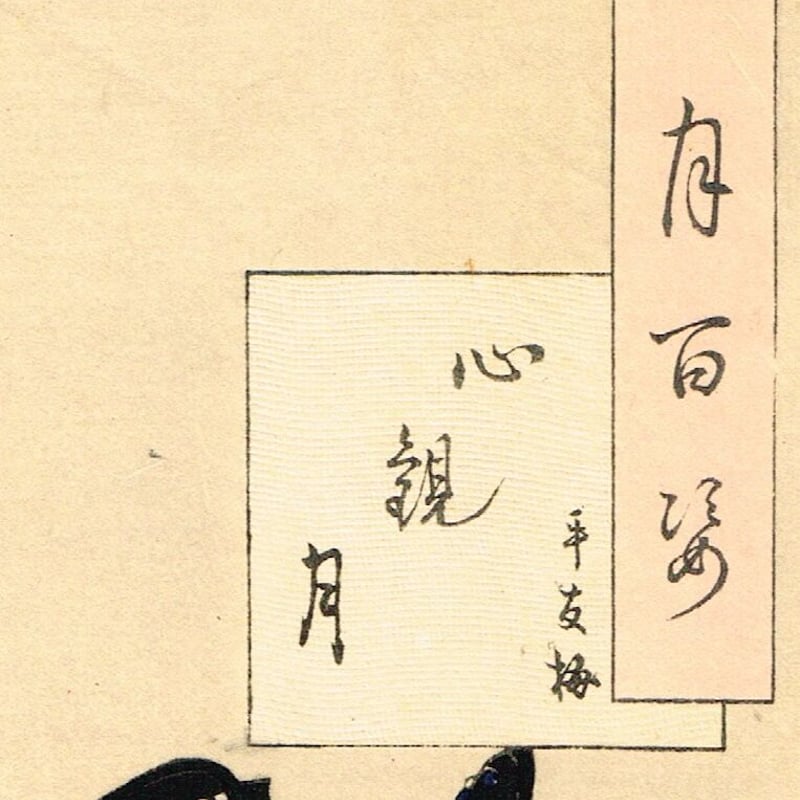 月百姿
平友梅
心観月